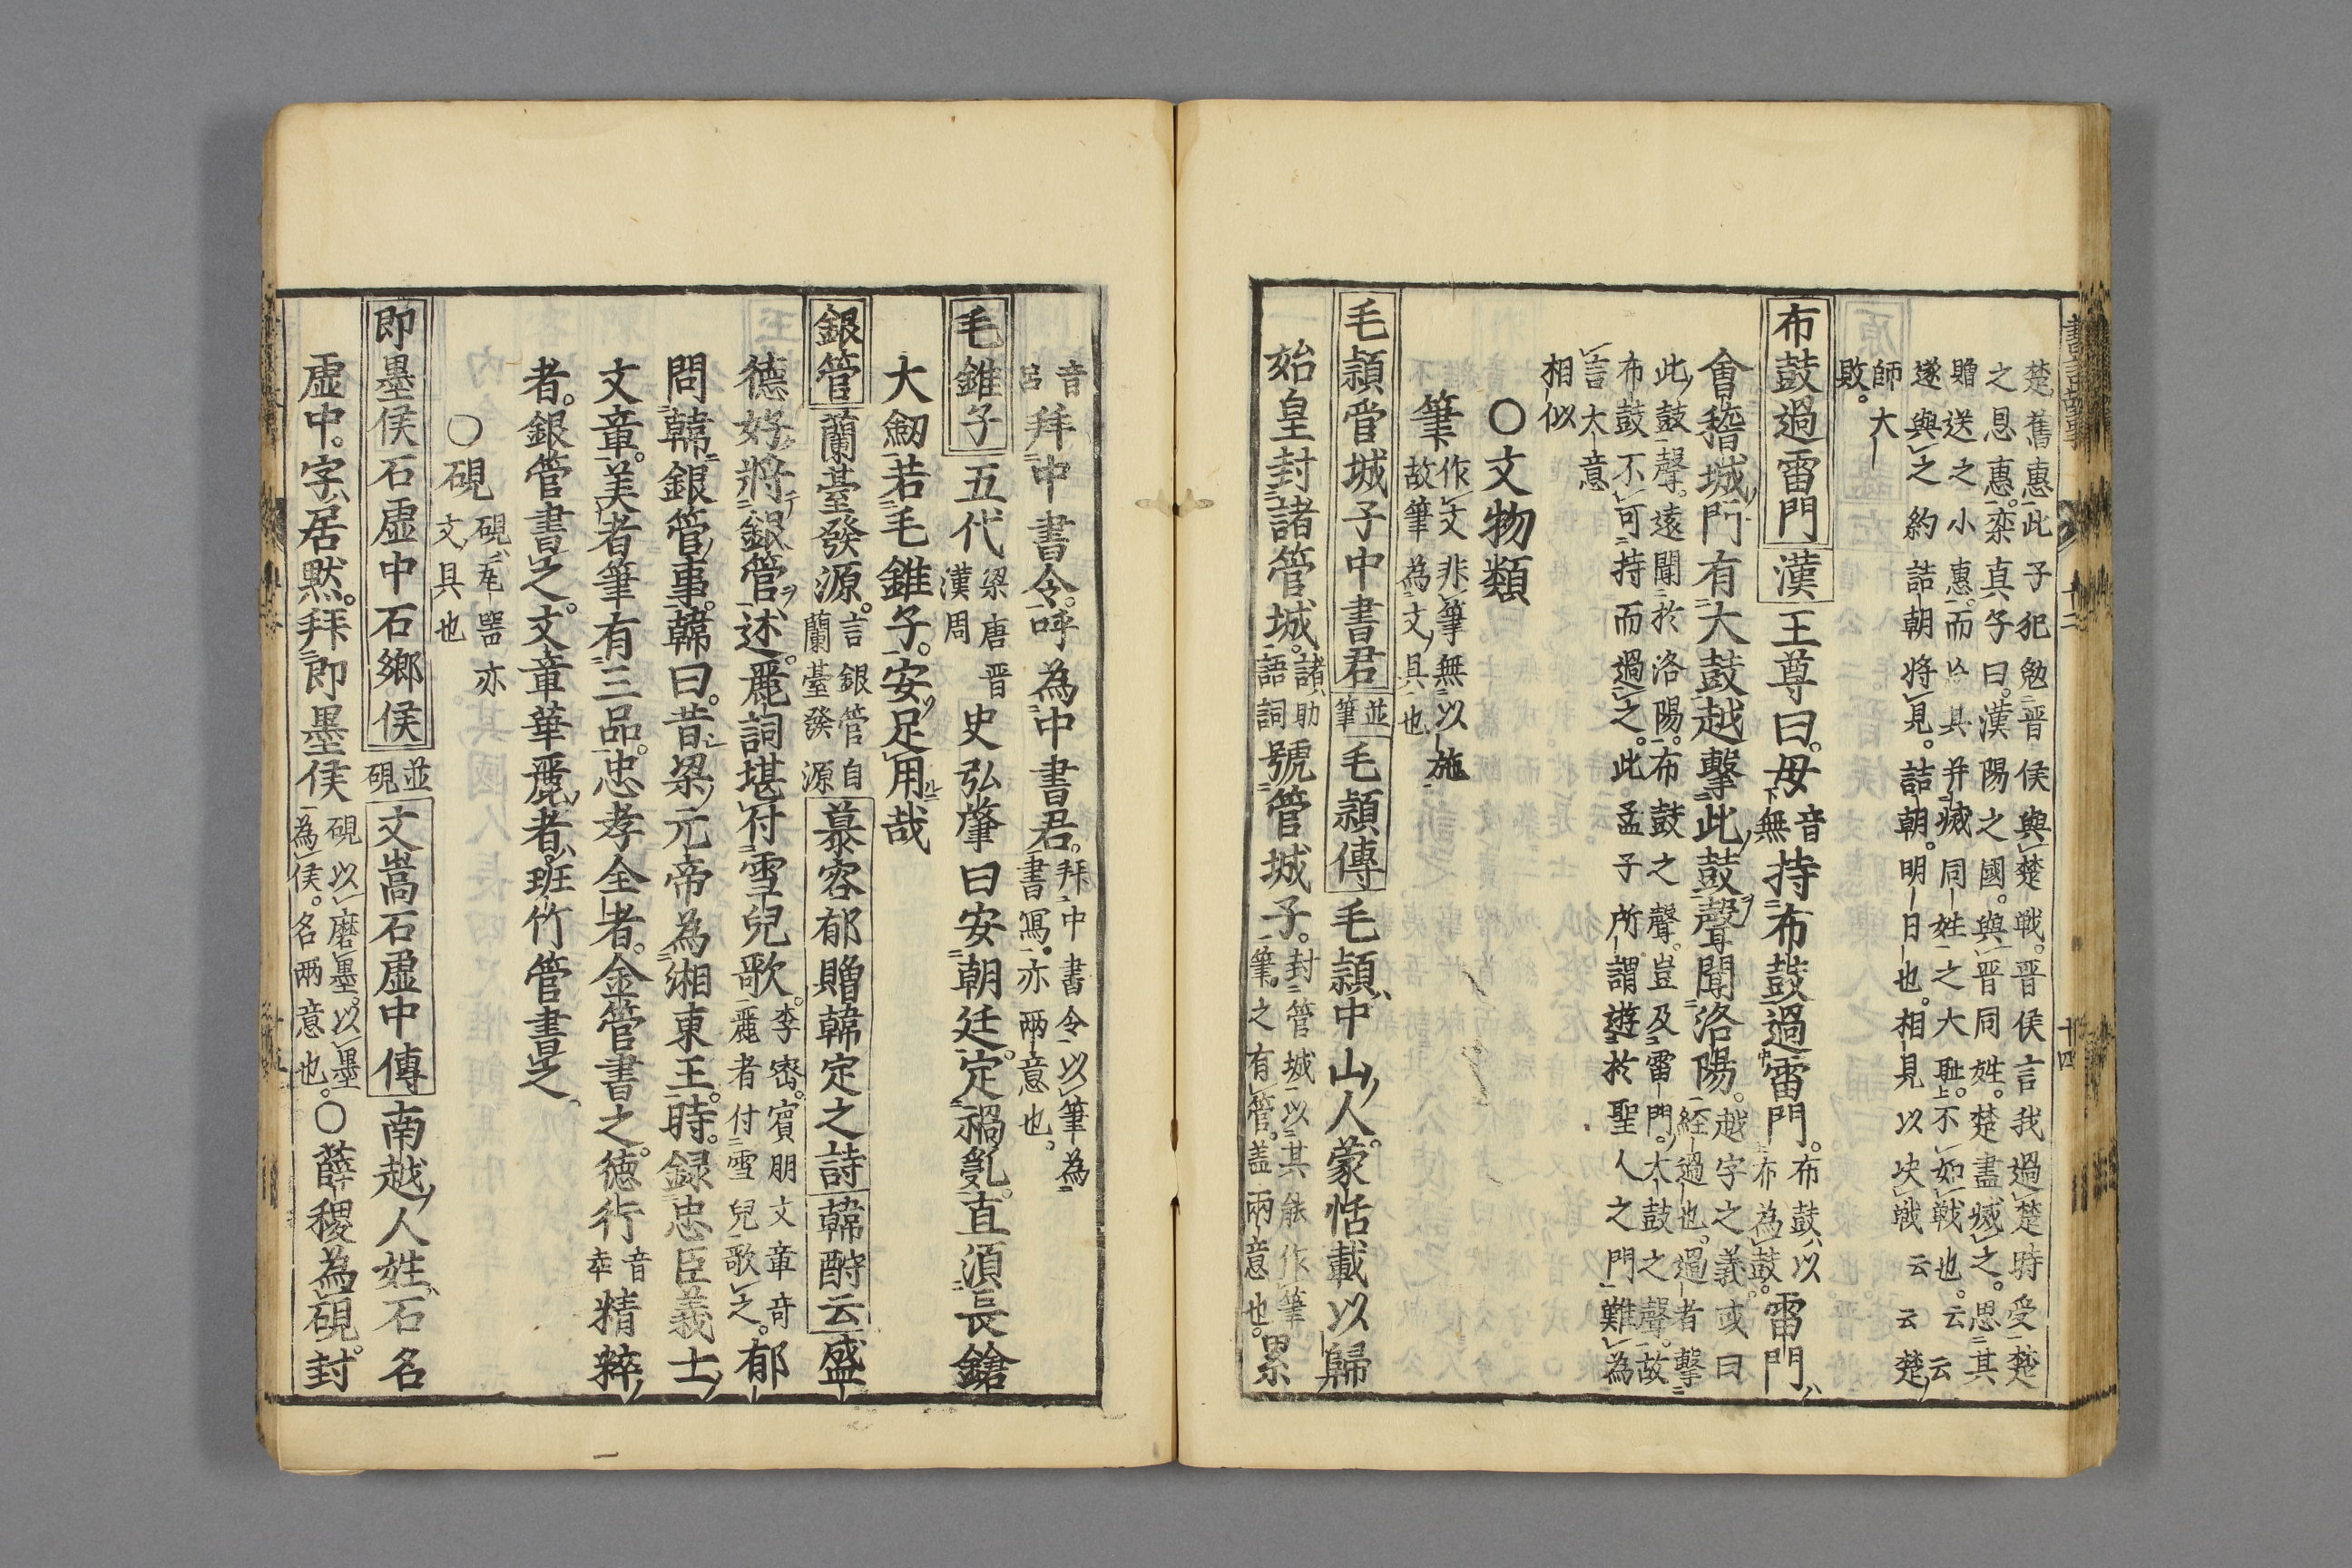 楚舊惠此子犯勉晋侯與楚戦。晋侯言我過楚時受楚
之恩惠。栾真子曰。漢陽之國。與晋同姓。楚盡滅之。思其
贈送之小惠。而 其并滅同姓之大耻。不如戦也。云云
遂與之約詰朝將見。詰朝。明日也。相見以决戦云云楚
師大
敗。
布鼓過雷門 漢 王尊曰。毋音無持布鼓過雷門。布鼓以布為鼓。雷門
會稽城門有大鼓越擊此鼓聲聞洛陽。越字之義或曰経過也。過者擊
此鼓聲。遠聞於洛陽。布鼓之聲。豈及雷門。大鼓之聲。故
布鼓不可持而過之。此孟子所謂遊於聖人之門難為
言大意
相似
〇文物類
筆 作文非筆無以施故筆為文具也
毛頴管城子中書君 並筆 毛頴傳 毛頴中山人。蒙恬載以歸
始皇封諸管城。諸助語詞號管城子。封管城以其能作筆筆之有管。盖兩意也。累
音呂拜中書令。呼為中書君。拜中書令以筆為書寫。亦兩意也。
毛錐子 五代 梁唐晋漢周 史弘肇曰安朝廷。定禍亂。直須長鎗
大劔若毛錐子。安足用哉
銀管 蘭䑓發源。言銀管自蘭䑓發源 慕容郁贈韓定之詩 韓酧云 盛
德好將銀管述。麗詞堪付雪兒歌。李宻。賓朋文章奇麗者付雪兒歌之。郁
問韓銀管事。韓曰。昔梁元帝為湘東王。時。録忠臣義士
文章。美者筆有三品。忠孝全者。金管書之。德行音幸精粹
者。銀管書之。文章華麗者班竹管書是。
〇硯 硯瓦噐亦文具也
即墨侯石虚中石鄉侯 並硯 文嵩石虚中傳 南越人姓石名
虚中。字居默。拜即墨侯硯以磨墨。以墨為侯。名兩意也。〇薛稷為硯。封